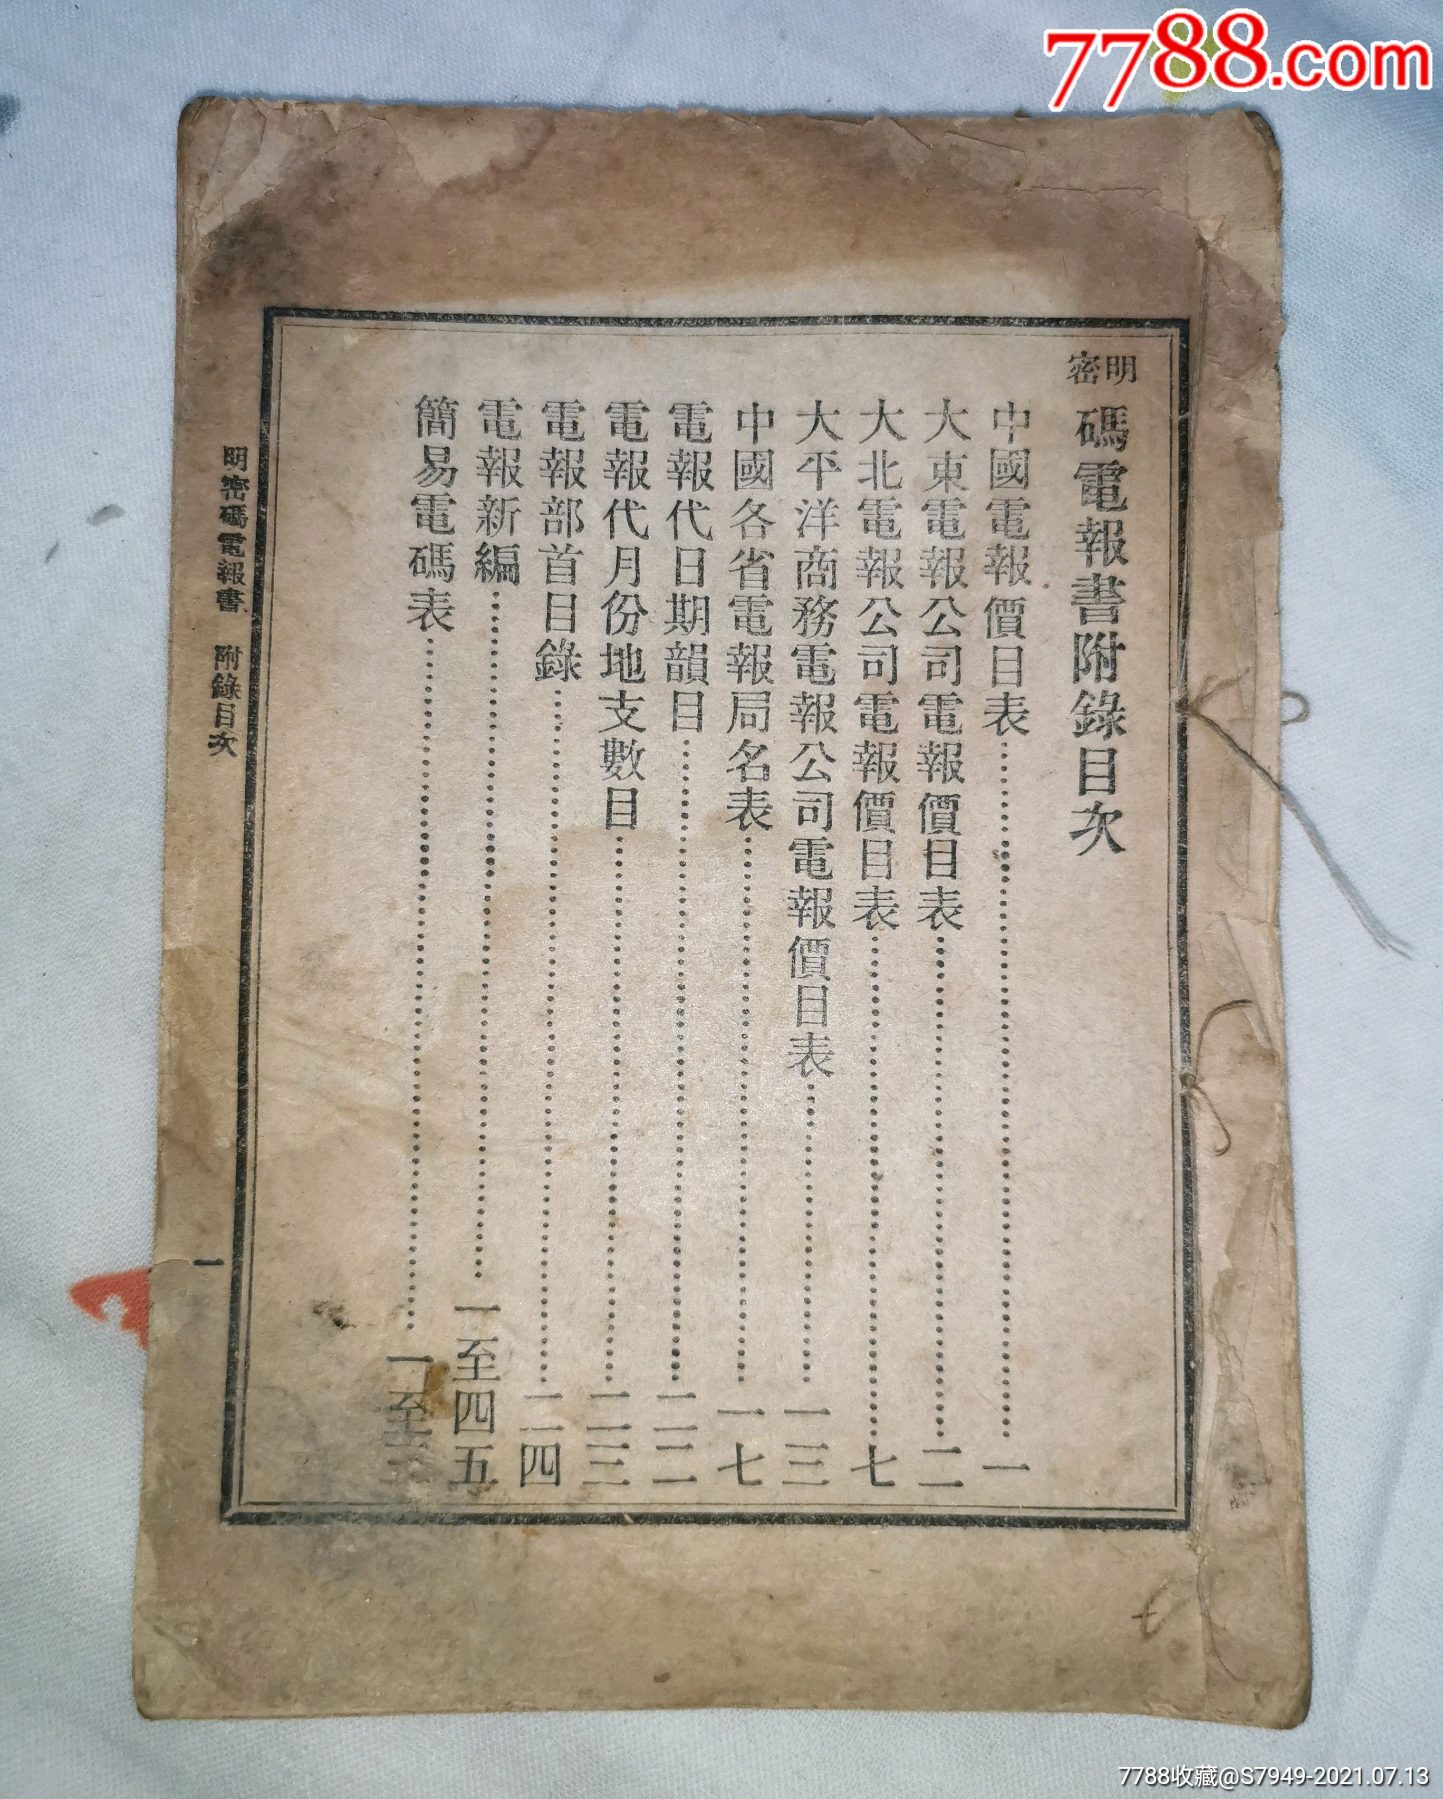 7788.com
明密碼電報書附錄目次
中國電報價目表……一
大東電報公司電報價目表……二
大北電報公司電報價目表……七
大平洋商務電報公司電報價目表……一三
中國各省電報局名表……一七
電報代日期韻目……二二
電報代月份地支數目……二三
電報部首目錄……二四
電報新編……一至四五
簡易電碼表……一至
明密碼電報書 附錄目次
一
7788收藏@S7949-2021.07.13